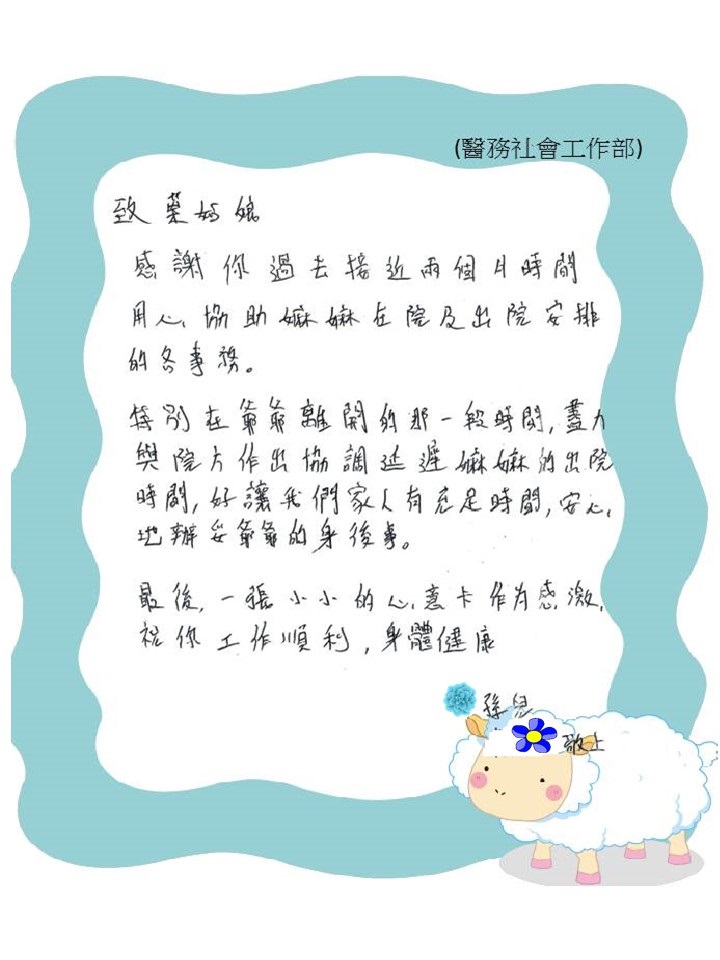 (醫務社會工作部)
致 葉姑娘
感謝你過去接近兩個月時間
用心協助嫲嫲在院及出院安排
的各事務。
特別在爺爺離開的那一段時間,盡力
與院方作出協調延遲嫲嫲的出院
時間,好讓我們家人有充足時間,安心
地辦妥爺爺的身後事。
最後,一張小小的心意卡作為感激,
祝你工作順利,身體健康
孫兒
敬上